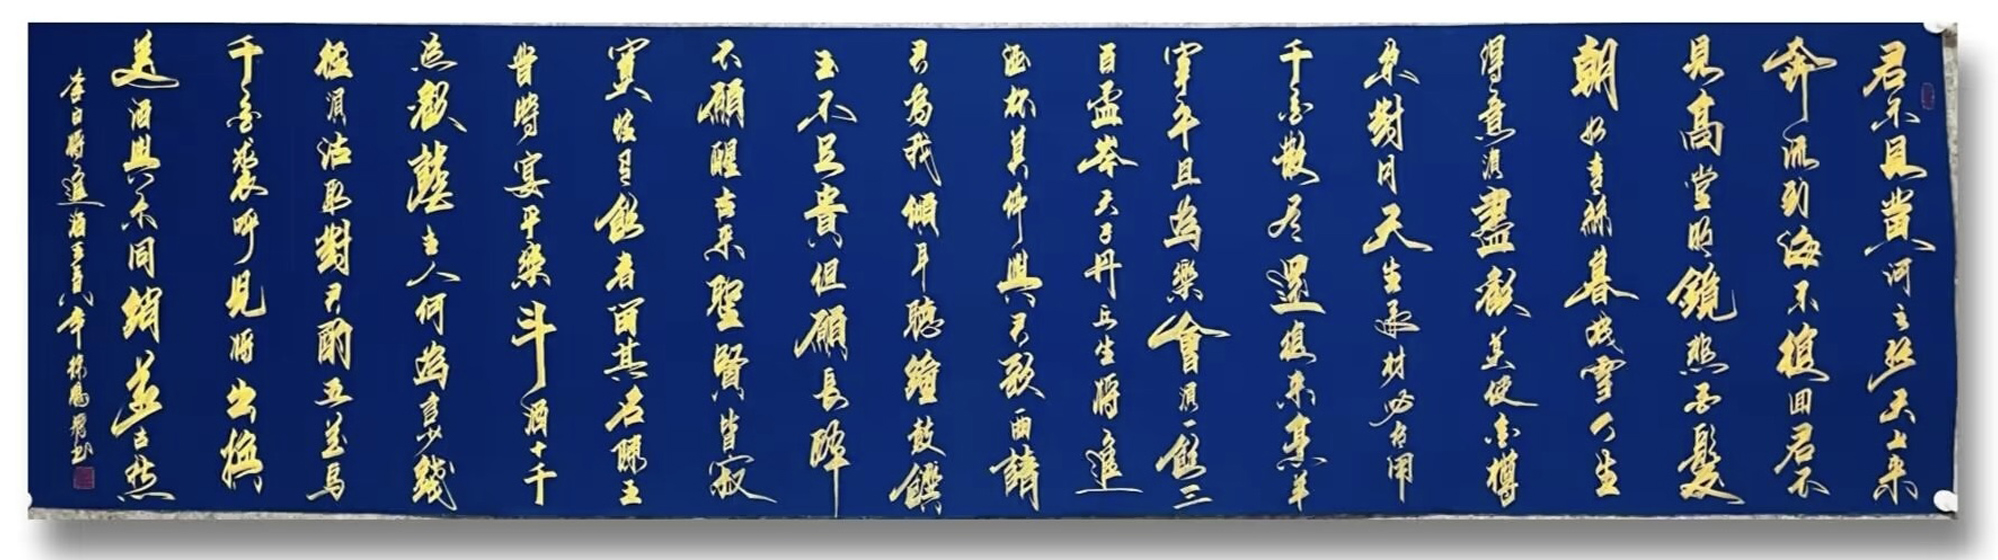 君不見黃河之水天上来
奔流到海不復回君不
見高堂明鏡悲白髮
朝如青絲暮成雪人生
得意須盡歡莫使金樽
空對月天生我材必有用
千金散尽還復来烹羊
宰牛且為樂會須一飲三
百盃岑夫子丹丘生將進
酒杯莫停與君歌一曲請
君為我傾耳聽鐘鼓饌
玉不足貴但願長醉
不願醒古来聖賢皆寂
寞惟有飲者留其名陳王
昔時宴平樂斗酒十千
恣歡謔主人何為言少錢
徑須沽取對君酌五花馬
千金裘呼兒將出換
美酒與尔同銷萬古愁
李白將進酒